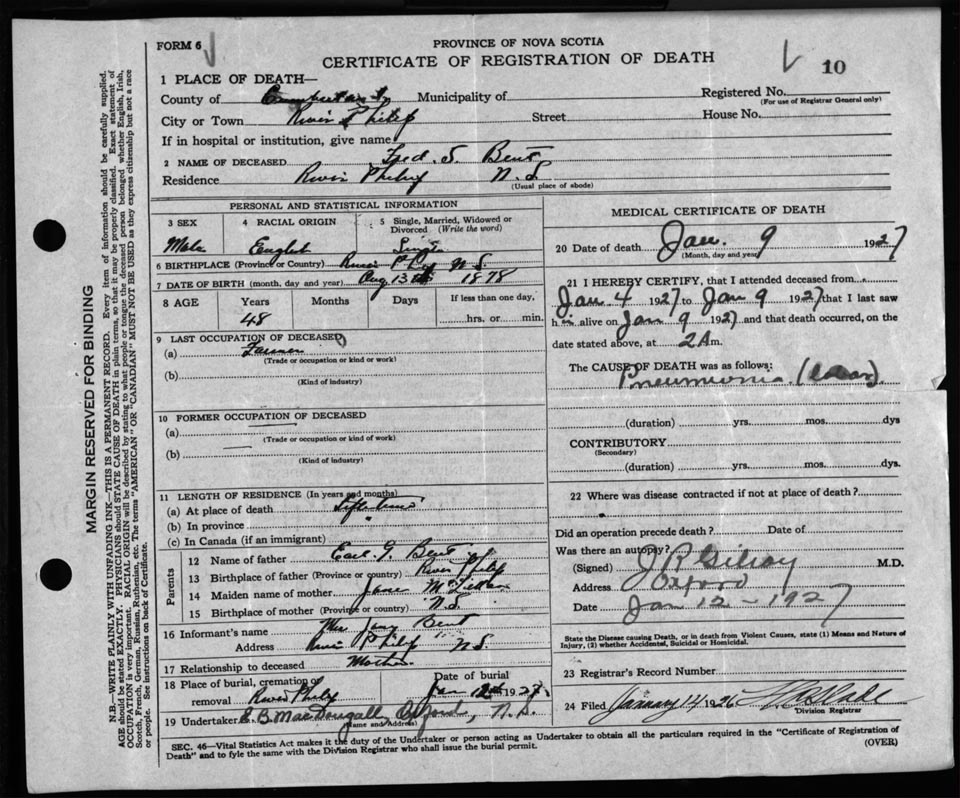 FORM 6
PROVINCE OF NOVA SCOTIA
CERTIFICATE OF REGISTRATION OF DEATH
10
1 PLACE OF DEATH—
County of Municipality of Registered No.
(For use of Registrar General only)
City or Town River Philip Street House No.
If in hospital or institution, give name
2 NAME OF DECEASED Fred. S. Bent
Residence River Philip N.S.
(Usual place of abode)
PERSONAL AND STATISTICAL INFORMATION
3 SEX 4 RACIAL ORIGIN 5 Single, Married, Widowed or Divorced (Write the word)
Male English Single
6 BIRTHPLACE (Province or Country) River Philip N.S.
7 DATE OF BIRTH (month, day and year) Aug 13th 1878
8 AGE Years Months Days If less than one day,
48 hrs. or min.
9 LAST OCCUPATION OF DECEASED
(a) Farmer
(Trade or occupation or kind or work)
(b)
(Kind of industry)
10 FORMER OCCUPATION OF DECEASED
(a)
(Trade or occupation or kind of work)
(b)
(Kind of industry)
11 LENGTH OF RESIDENCE (In years and months)
(a) At place of death Lifetime
(b) In province "
(c) In Canada (if an immigrant)
Parents
12 Name of father Earl G. Bent
13 Birthplace of father (Province or country) River Philip
14 Maiden name of mother Jane
15 Birthplace of mother (Province or country) N.S.
16 Informant's name Mrs Jane Bent
Address River Philip N.S.
17 Relationship to deceased Mother
18 Place of burial, cremation or removal River Philip Date of burial Jan 12th 1927
19 Undertaker E. B. MacDougall Oxford, N.S.
(Name and Address)
MEDICAL CERTIFICATE OF DEATH
20 Date of death Jan. 9 1927
(Month, day and year)
21 I HEREBY CERTIFY, that I attended deceased from
Jan 4 1927 to Jan 9 1927 that I last saw
him alive on Jan 9 1927 and that death occurred, on the
date stated above, at 2 Am.
The CAUSE OF DEATH was as follows:
Pneumonia (Lobar)
(duration) yrs. mos. dys
CONTRIBUTORY
(Secondary)
(duration) yrs. mos. dys.
22 Where was disease contracted if not at place of death?
Did an operation precede death? Date of
Was there an autopsy?
(Signed) J R Gilroy M.D.
Address Oxford
Date Jan 12 - 1927
State the Disease causing Death, or in death from Violent Causes, state (1) Means and Nature of Injury, (2) whether Accidental, Suicidal or Homicidal.
23 Registrar's Record Number
24 Filed January 14 1926
Division Registrar
SEC. 46—Vital Statistics Act makes it the duty of the Undertaker or person acting as Undertaker to obtain all the particulars required in the "Certificate of Registration of
Death" and to fyle the same with the Division Registrar who shall issue the burial permit.
(OVER)
MARGIN RESERVED FOR BINDING
N.B.—WRITE PLAINLY WITH UNFADING INK—THIS IS A PERMANENT RECORD. Every item of information should be carefully supplied.
AGE should be stated EXACTLY. PHYSICIANS should STATE CAUSE OF DEATH in plain terms, so that it may be properly classified. Exact statement of
OCCUPATION is very important. RACIAL ORIGIN will be described by stating to what people or tongue the deceased person belonged whether English, Irish,
Scotch, French, German, Russian, Ruthenian, etc. The terms "AMERICAN" OR "CANADIAN" MUST NOT BE USED as they express citizenship but not a race
or people. See instructions on back of Certificate.